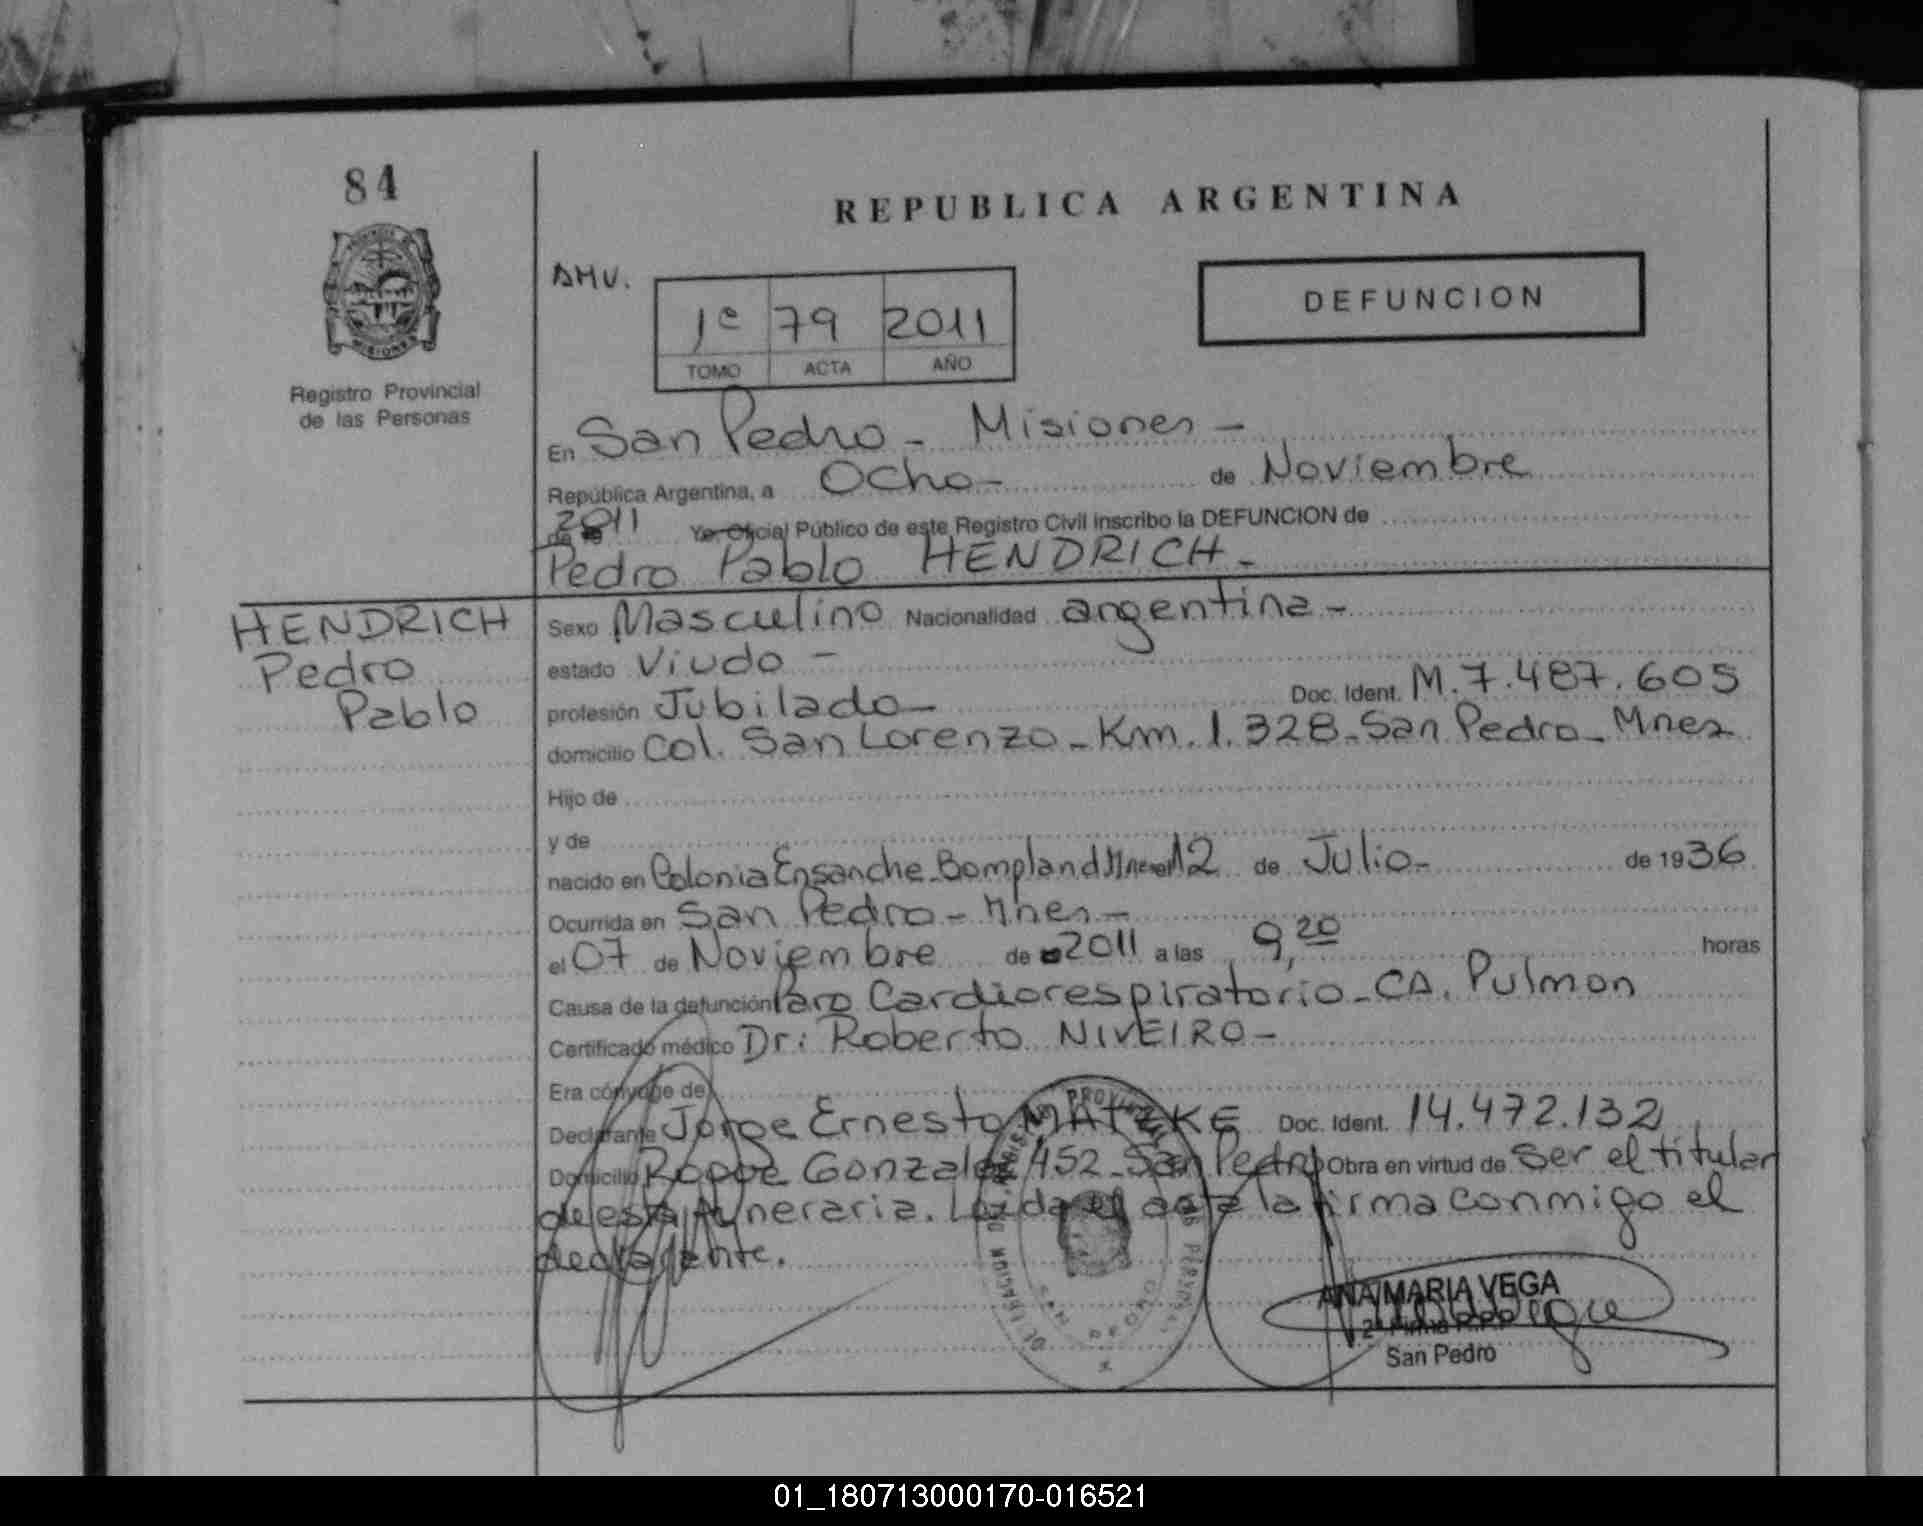 84
REPUBLICA ARGENTINA
AMV.
DEFUNCION
1º 79 2011
TOMO ACTA AÑO
MISIONES
Registro Provincial
de las Personas
En San Pedro - Misiones -
República Argentina, a Ocho - de Noviembre
de 2011 Yo Oficial Público de este Registro Civil inscribo la DEFUNCION de
Pedro Pablo HENDRICH -
HENDRICH
Pedro
Pablo
Sexo Masculino Nacionalidad argentina -
estado Viudo -
profesión Jubilado - Doc. Ident. M.7.487.605
domicilio Col. San Lorenzo - Km. 1.328 - San Pedro - Mnes
Hijo de
y de
nacido en Colonia Ensanche - Bompland Mnes el 12 de Julio - de 1936
Ocurrida en San Pedro - Mnes -
el 07 de Noviembre de 2011 a las 9,20 horas
Causa de la defunción Paro Cardiorespiratorio - CA. Pulmon
Certificado médico Dr: Roberto NIVEIRO -
Era cónyuge de
Declarante Jorge Ernesto MATZKE Doc. Ident. 14.472.132
Domicilio Roque Gonzalez 452 - San Pedro Obra en virtud de Ser el titular
de esta funeraria. Leida el acta la firma conmigo el
declarante.
ANA MARIA VEGA
2ª Firma R.P.P
San Pedro
01_180713000170-016521